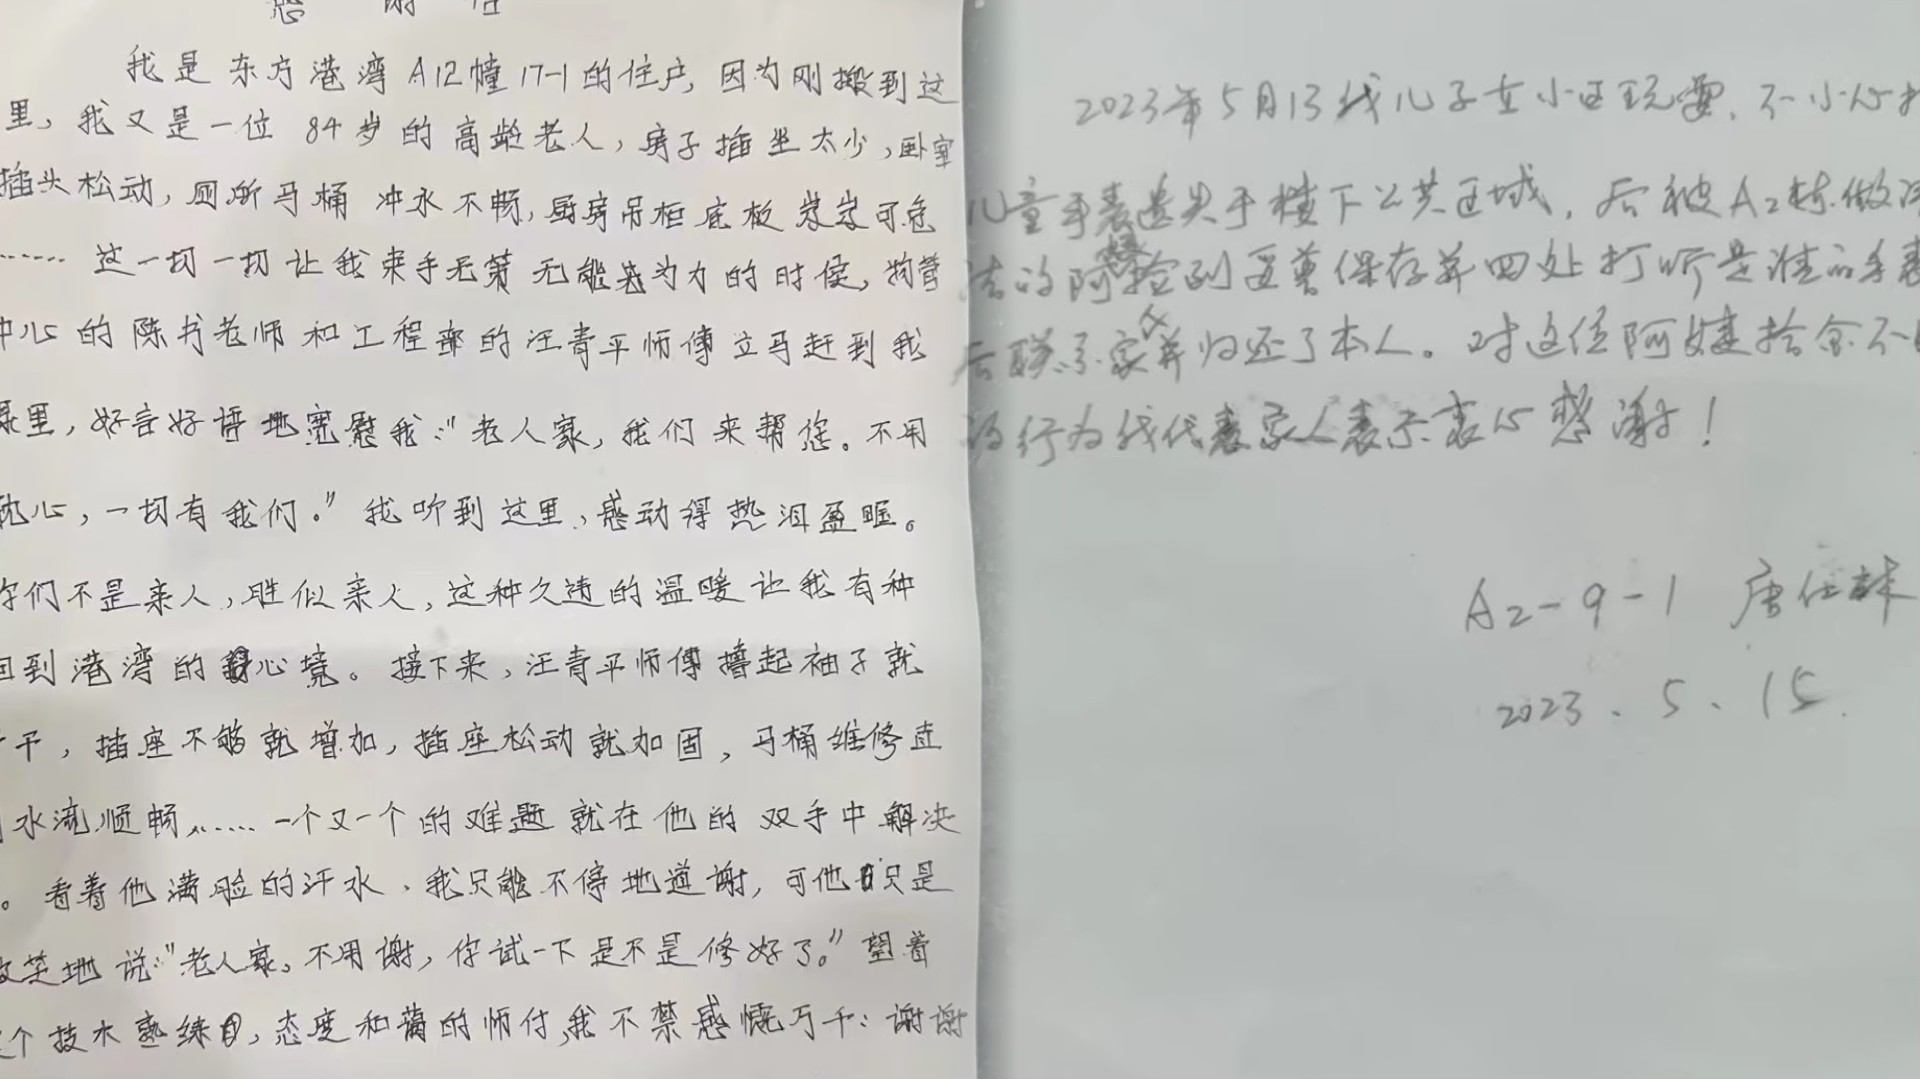 感谢信
我是东方港湾A12幢17-1的住户,因为刚搬到这
里,我又是一位84岁的高龄老人,房子插坐太少,卧室
插头松动,厕所马桶冲水不畅,厨房吊柜底板岌岌可危
…… 这一切一切让我束手无策无能为力的时候,物管
中心的陈书老师和工程部的汪青平师傅立马赶到我
家里,好言好语地宽慰我:"老人家,我们来帮您。不用
忧心,一切有我们。"我听到这里,感动得热泪盈眶。
你们不是亲人,胜似亲人,这种久违的温暖让我有种
回到港湾的心境。接下来,汪青平师傅撸起袖子就
干,插座不够就增加,插座松动就加固,马桶维修
水流顺畅,……一个又一个的难题就在他的双手中解决
。看着他满脸的汗水,我只能不停地道谢,可他只是
笑地说:"老人家,不用谢,你试一下是不是修好了。"望着
个技术熟练,态度和蔼的师付,我不禁感慨万千:谢谢
2023年5月13我儿子在小区玩耍,不小心
儿童手表遗失于楼下公共区域,后被A2栋做
洁的阿捡到妥善保存并四处打听是谁的手表
后联系家人并归还了本人。对这位阿姨拾金不
的行为我代表家人表示衷心感谢!
A2-9-1 唐仕林
2023、5、15.